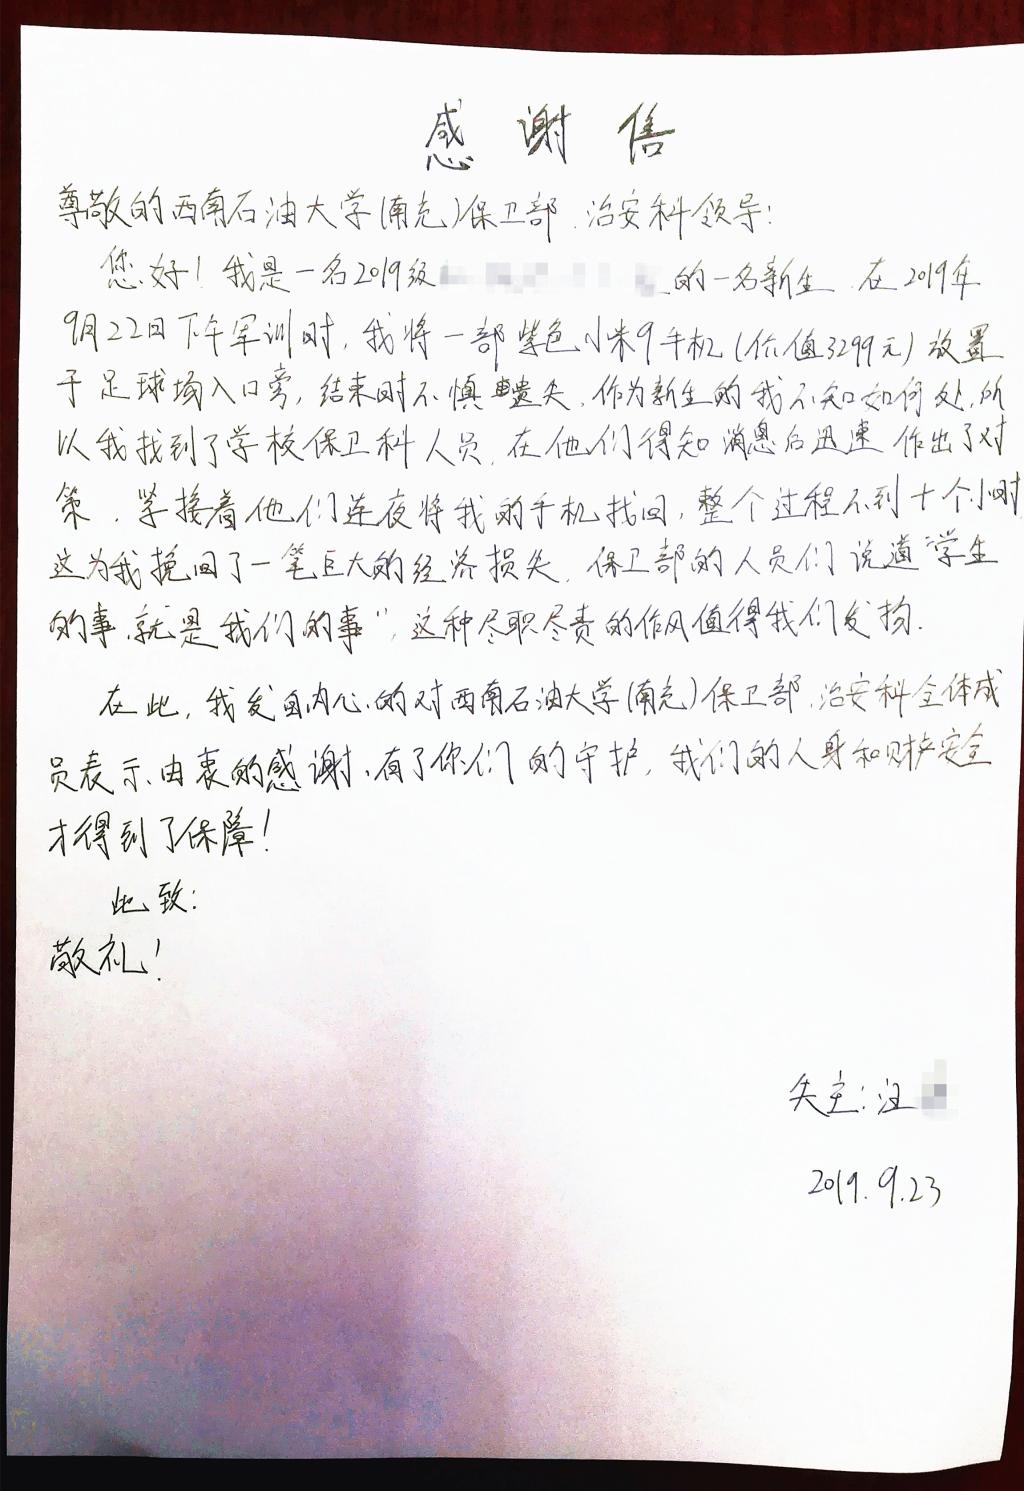 感谢信
尊敬的西南石油大学(南充)保卫部、治安科领导:
您好!我是一名2019级 的一名新生,在2019年
9月22日下午军训时,我将一部紫色小米9手机(价值3299元)放置
于足球场入口旁,结束时不慎遗失,作为新生的我不知如何处,所
以我找到了学校保卫科人员,在他们得知消息后迅速作出了对
策,紧接着他们连夜将我的手机找回,整个过程不到十个小时,
这为我挽回了一笔巨大的经济损失,保卫部的人员们说道“学生
的事,就是我们的事”,这种尽职尽责的作风值得我们发扬.
在此,我发自内心的对西南石油大学(南充)保卫部、治安科全体成
员表示由衷的感谢,有了你们的守护,我们的人身和财产安全
才得到了保障!
此致:
敬礼!
失主:汪
2019.9.23